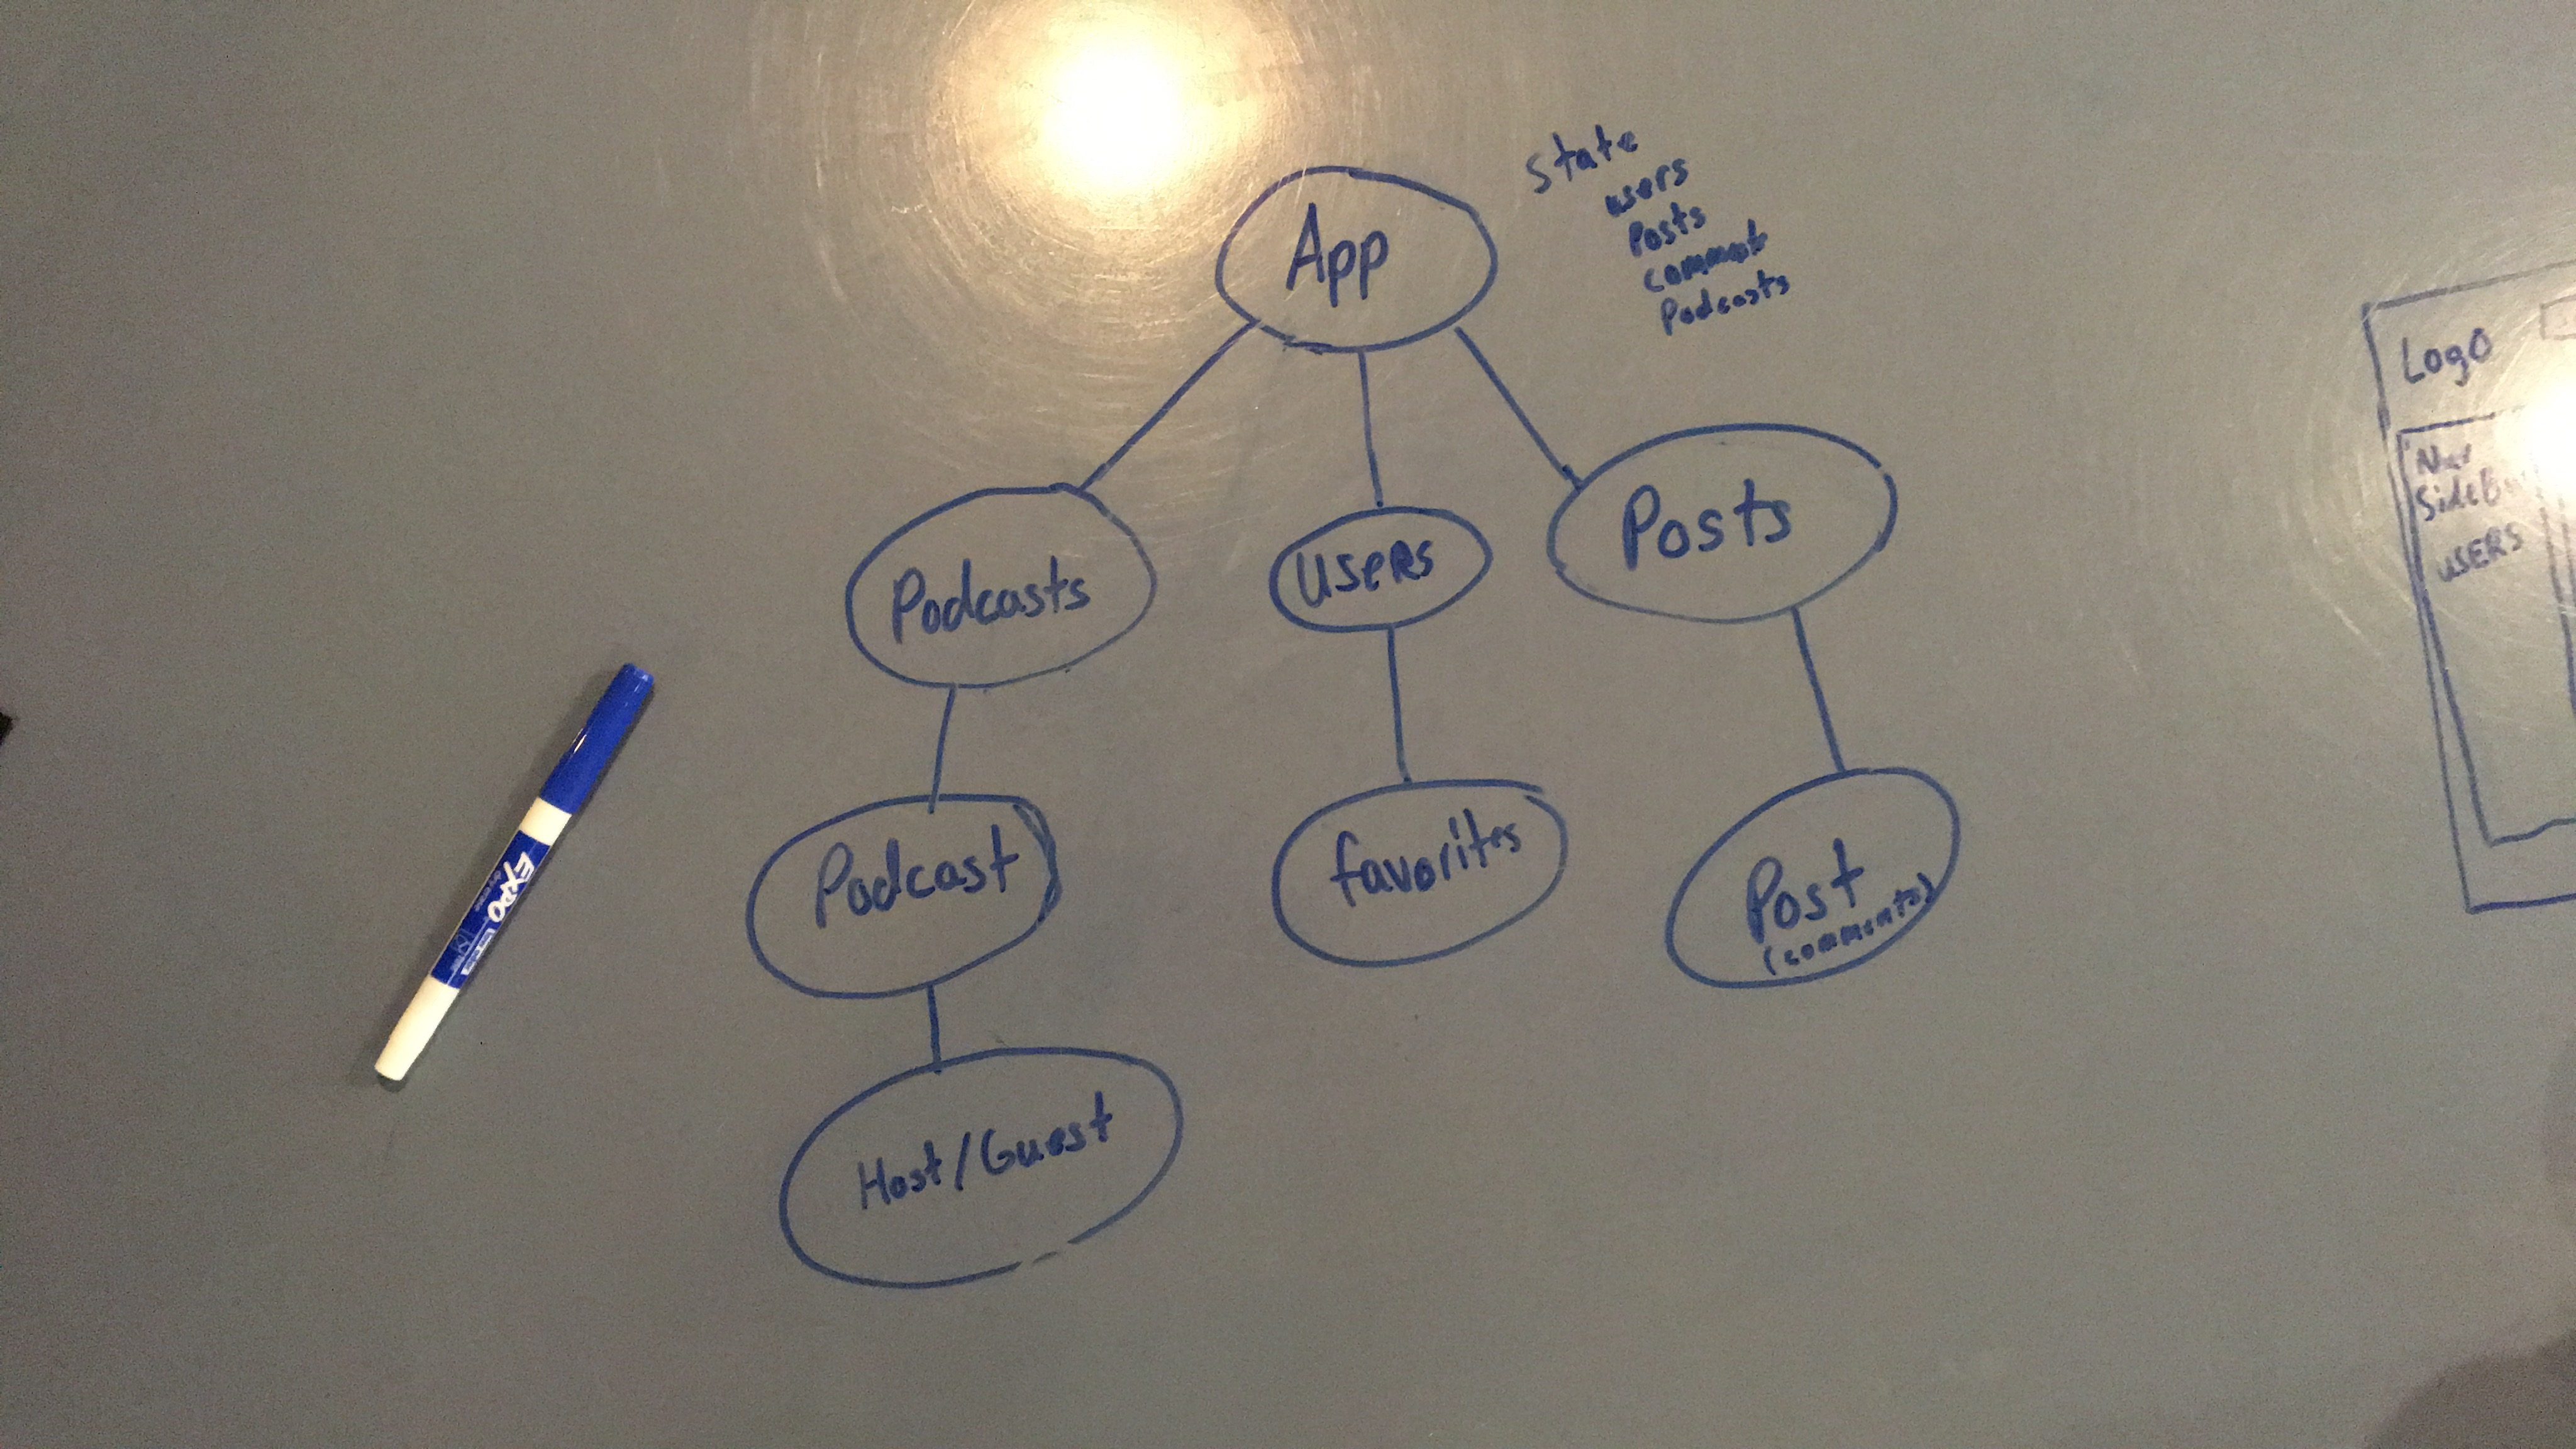 State
users
Posts
comments
Podcasts
App
Podcasts
Users
Posts
Podcast
favorites
Post
(comments)
Host/Guest
EXPO
Logo
Nav
SideBar
USERS